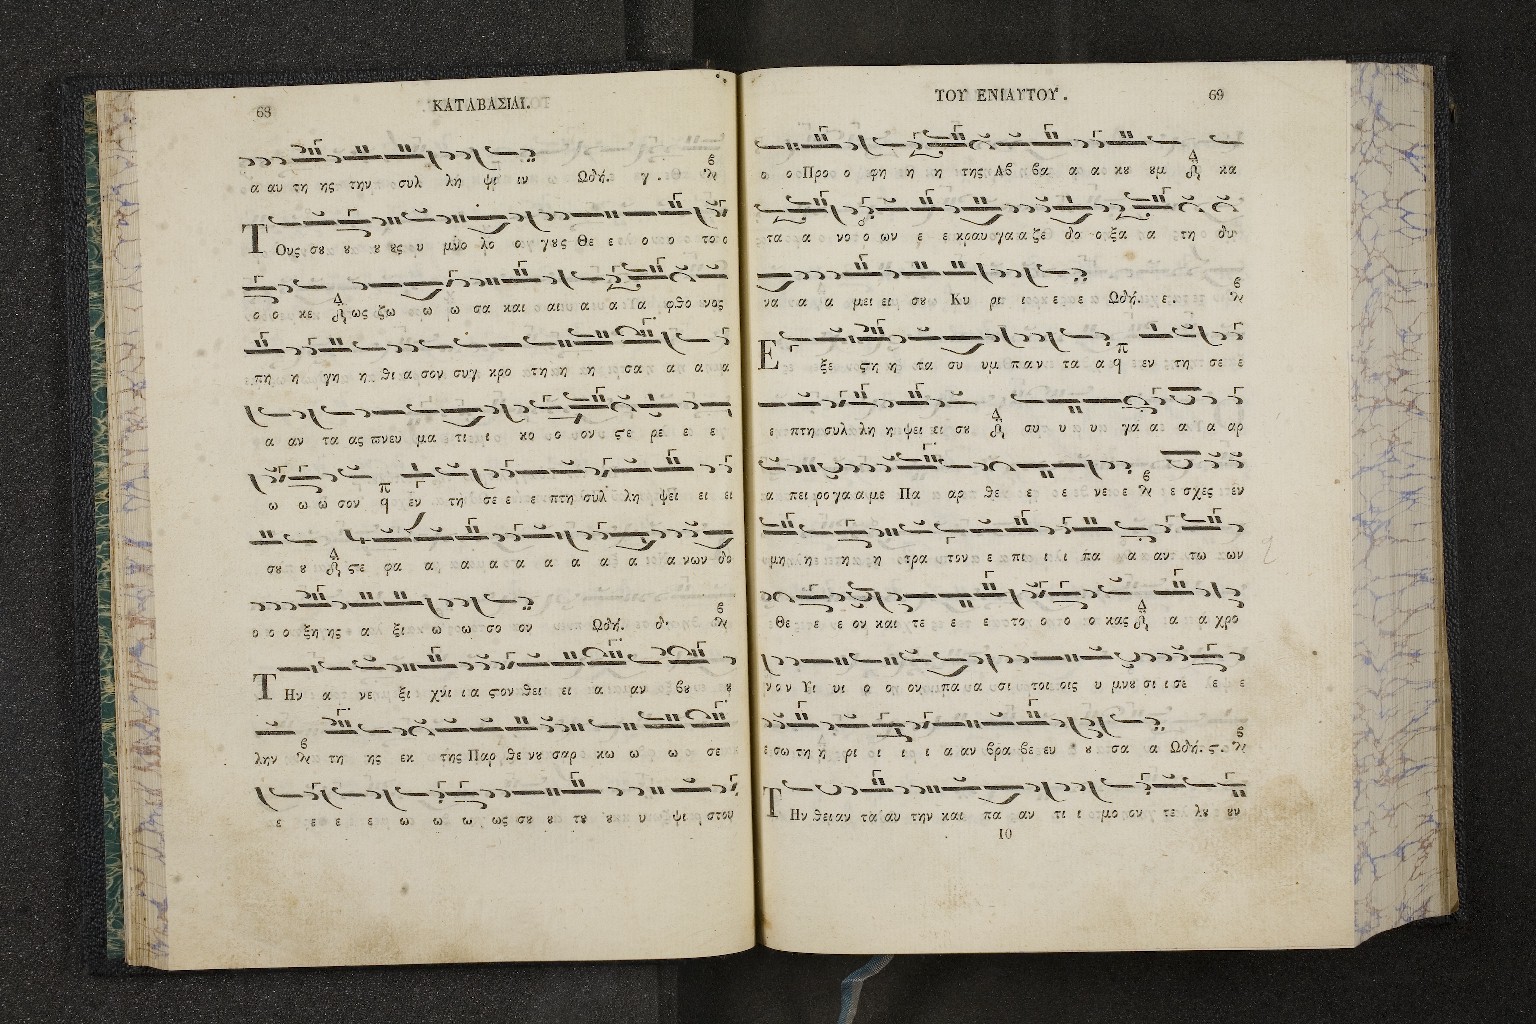 68
ΚΑΤΑΒΑΣΙΑΙ.
α αυ τη ης την συλ λη ψι ιν Ωδή. γ.
Τους σου ου ου ους ου μνο λο ο γους Θε ε ο ο ο το ο
ο ο κε ως ζω ω ω σα και αι α α α α φθο νος
πη η γη η θι α σον συγ κρο τη η η σα α α α
α αν τα ας πνευ μα τι ι κο ο ον ςε ρε ε ε
ω ω ω σον εν τη σε ε ε πτη συλ λη ψει ει ει
σου ου ςε φα α α α α α α α α α νων δο
ο ο ο ξη ης α ξι ω ω σο ον Ωδή. δ.
Την α νε ξι χνι ι α ςον θει ει α αν βου ου
λην τη ης εκ της Παρ θε νου σαρ κω ω ω σε
ε ε ε ε ω ω ω ως σου ου του ου υ ψι ι στου
ΤΟΥ ΕΝΙΑΥΤΟΥ.
69
ο ο Προ ο φη η η της Αβ βα α α κου ουμ κα
τα α νο ο ων ε ε κραυ γα α ζε δο ο ξα α τη δυ
να α α μει ει σου Κυ ρι ι ε ε Ωδή. ε.
Εξε ςη η τα συ υμ παν τα α εν τη σε ε
ε πτη συλ λη η ψει ει σου συ υ υ υ γα α α α α αρ
α πει ρο γα α με Πα αρ θε ε ε νε ε ε σχες εν
μη η ε πι ι ι πα α αν τω ων
Θε ε ε ον και τε ε ε το ο ο ο κας α α χρο
νον Υι υι ο ο ον πα α σι τοι οις υ μνου σι ι σε ε ε
ε σω τη η ρι ι ι ι α αν βρα βε ευ ου σα α Ωδή. ς.
Την θει αν τα αυ την και πα αν τι ι μο ον τε λου ουν
10